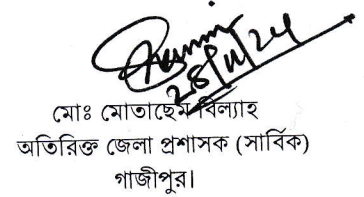 ২৪/১১/২৪
মোঃ মোতাছেম বিল্যাহ
অতিরিক্ত জেলা প্রশাসক (সার্বিক)
গাজীপুর।